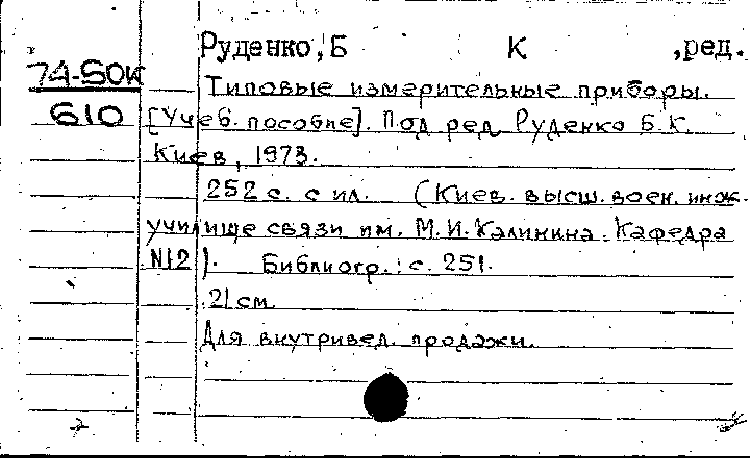 Руденко, Б К , ред.
74-50К
610
Типовые измерительные приборы.
[Учеб. пособие]. Под ред Руденко Б.К.
Киев, 1973.
252 с. с ил. (Киев. высш. воен. инж.
училище связи им. М.И. Калинина. Кафедра
N12). Библиогр.: с. 251.
21 см.
Для внутривед. продажи.